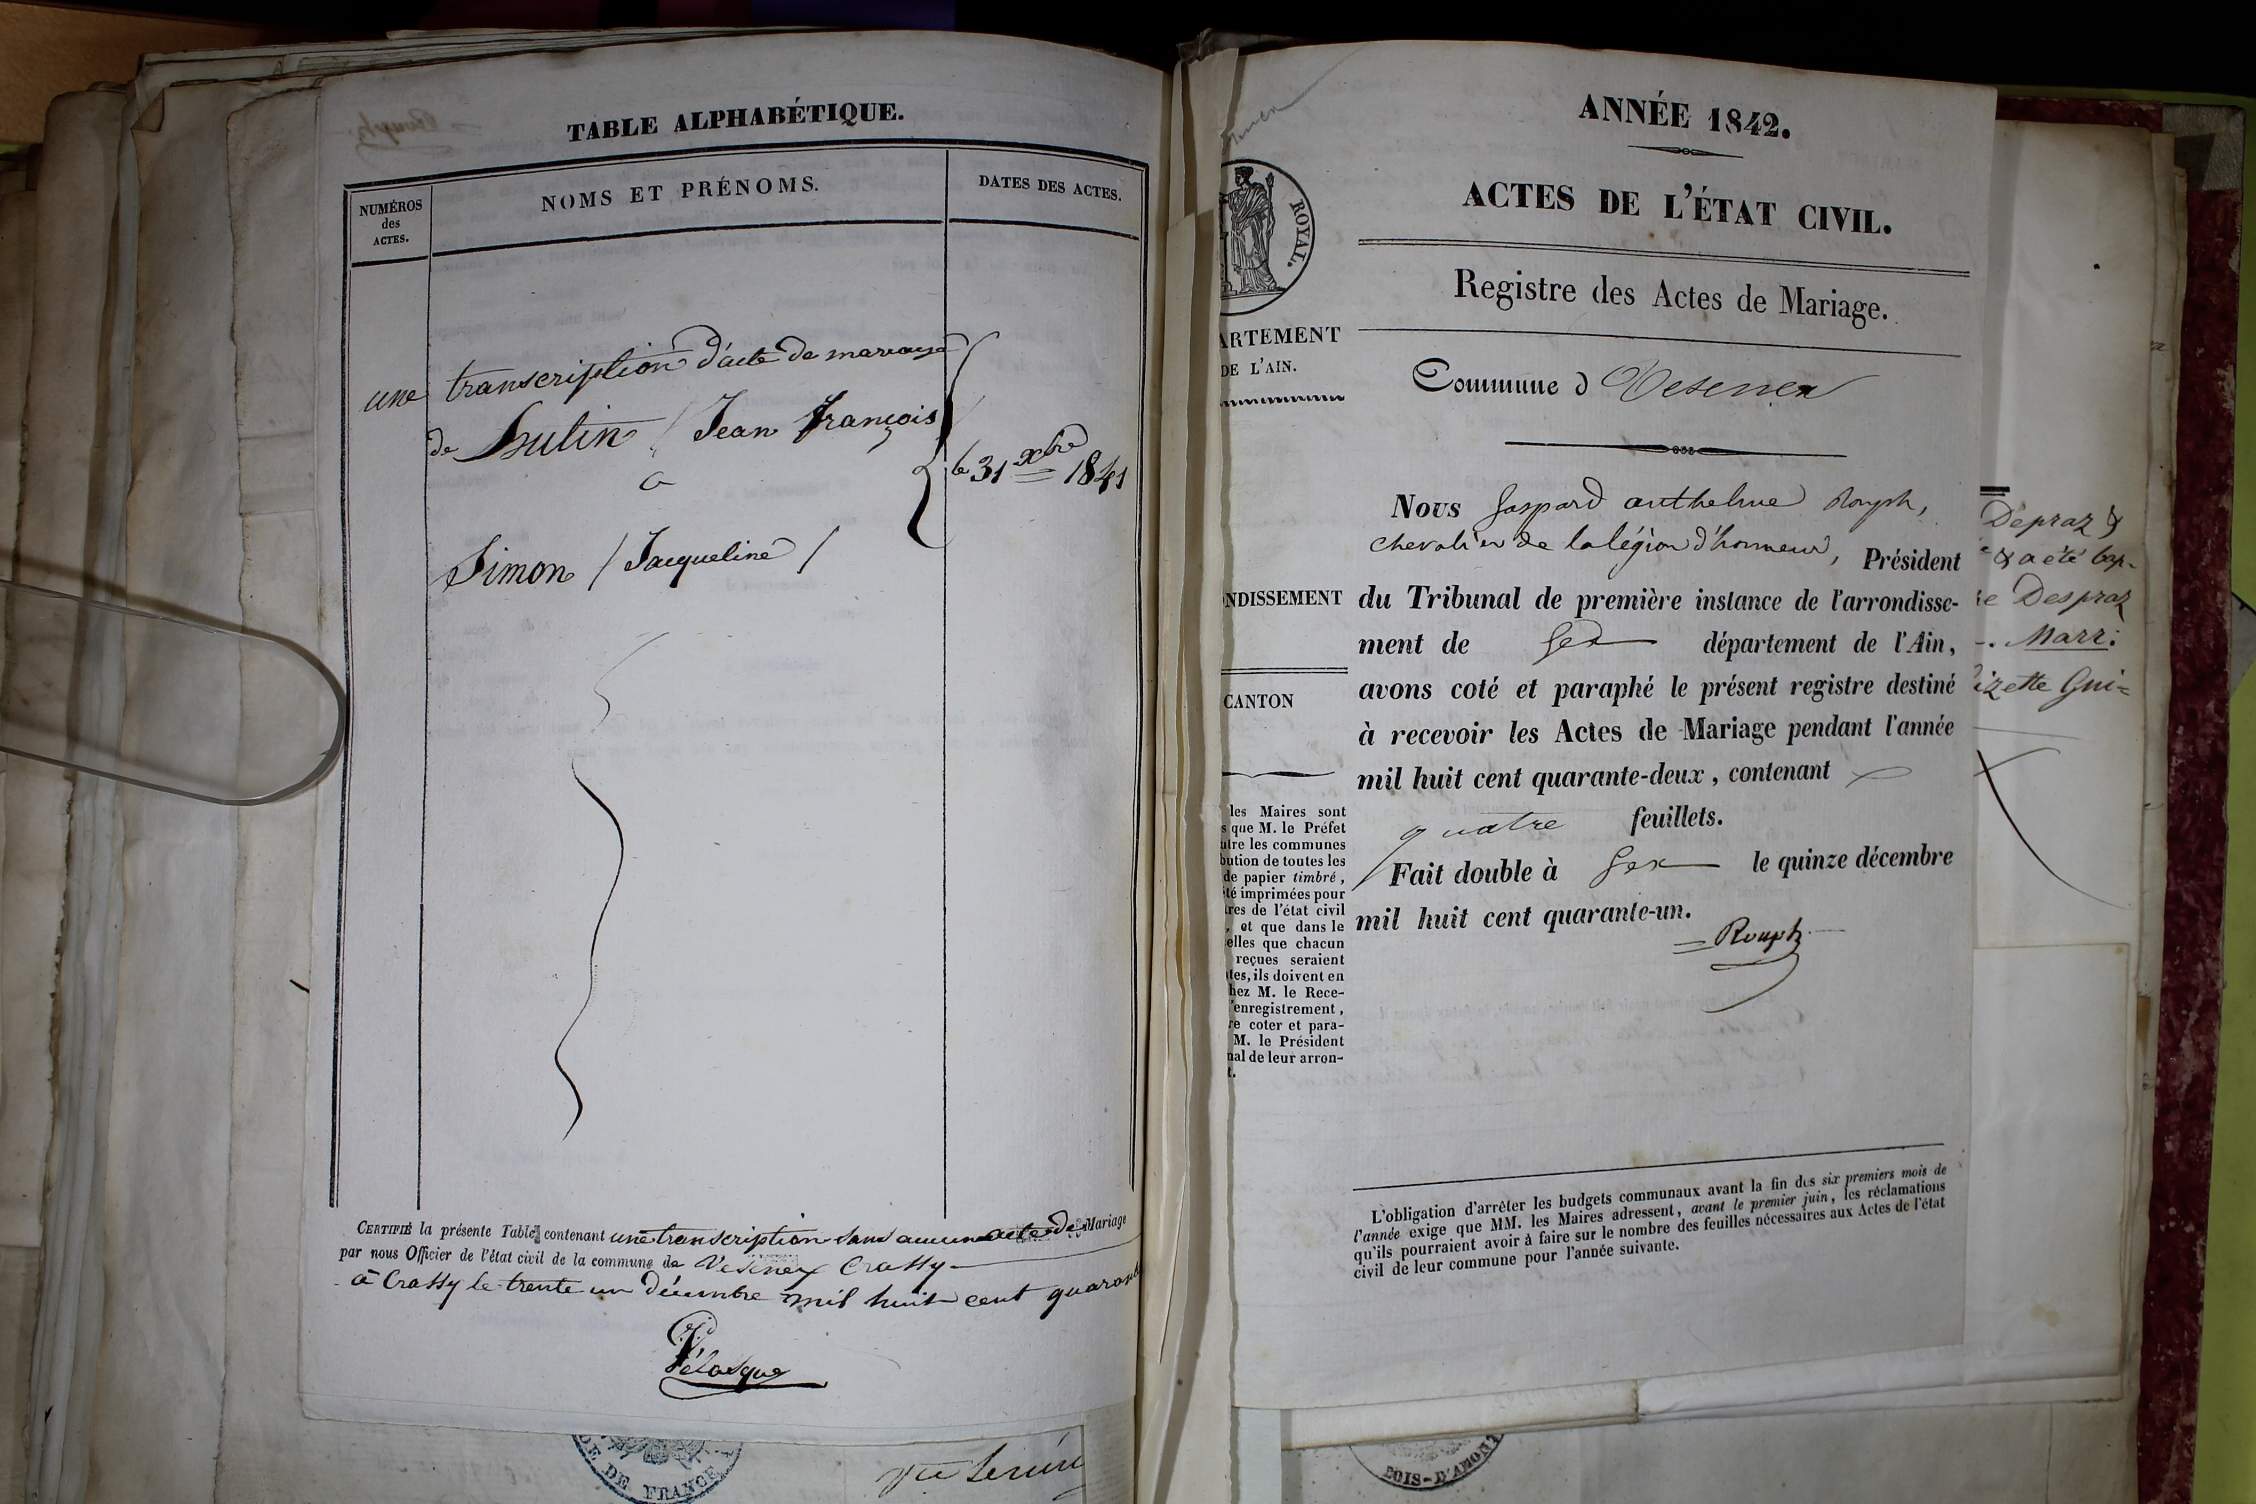 TABLE ALPHABÉTIQUE.
NUMÉROS
des
ACTES.
NOMS ET PRÉNOMS.
DATES DES ACTES.
une transcription d'acte de mariage
de Hulin / Jean François
a
le 31 xbre 1841
Simon / Jacqueline /
CERTIFIÉ la présente Table, contenant une transcription sans aucun acte de Mariage
par nous Officier de l'état civil de la commune de Vesenex Crassy
à Crassy le trente un décembre mil huit cent quarante
Pélasque
DE FRANCE
ANNÉE 1842.
ACTES DE L'ÉTAT CIVIL.
ROYAL.
Registre des Actes de Mariage.
ARTEMENT
DE L'AIN.
Commune d Vesenex
Nous Gaspard anthelme Rouph,
chevalier de la légion d'honneur, Président
NDISSEMENT
du Tribunal de première instance de l'arrondisse-
ment de Gex département de l'Ain,
avons coté et paraphé le présent registre destiné
CANTON
à recevoir les Actes de Mariage pendant l'année
mil huit cent quarante-deux, contenant
quatre feuillets.
Fait double à Gex le quinze décembre
mil huit cent quarante-un.
Rouph
les Maires sont
s que M. le Préfet
utre les communes
bution de toutes les
de papier timbré,
té imprimées pour
res de l'état civil
, et que dans le
elles que chacun
reçues seraient
tes, ils doivent en
hez M. le Rece-
'enregistrement,
re coter et para-
M. le Président
nal de leur arron-
t.
L'obligation d'arrêter les budgets communaux avant la fin des six premiers mois de
l'année exige que MM. les Maires adressent, avant le premier juin, les réclamations
qu'ils pourraient avoir à faire sur le nombre des feuilles nécessaires aux Actes de l'état
civil de leur commune pour l'année suivante.
Depraz &
& a été bap-
Despraz
Marr:
izette Gui=
BOIS-D'AMONT